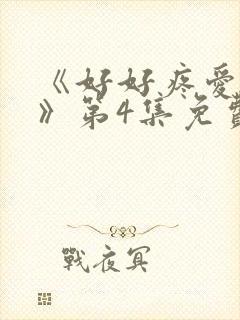 《好好疼爱
》第4集免费
戰夜冥